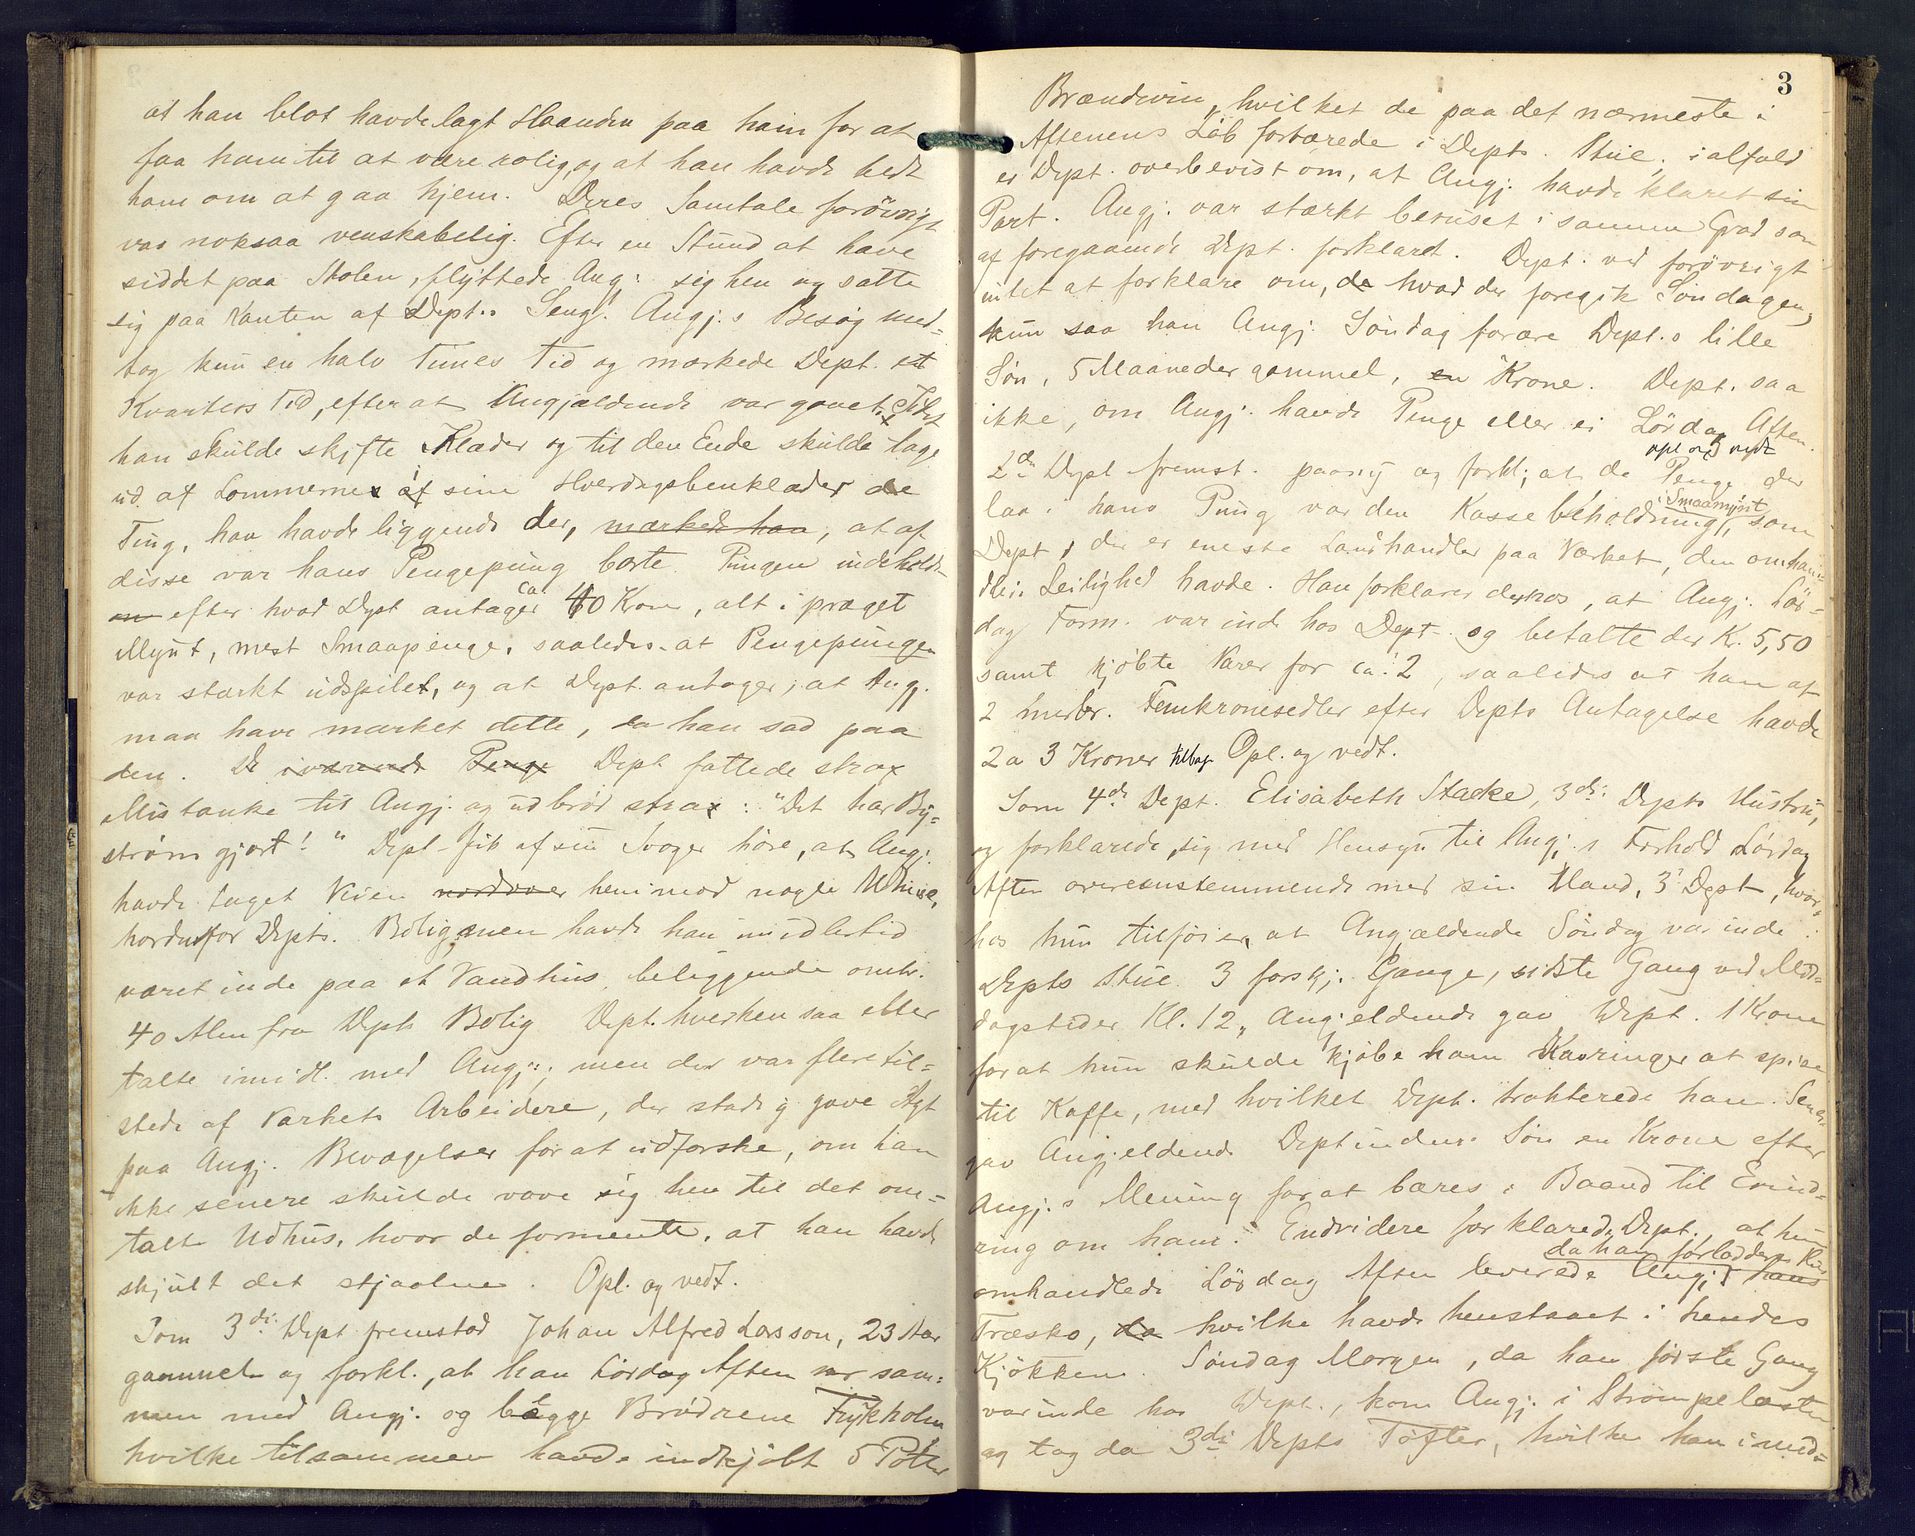 at han blot havde lagt Haanden paa ham for at
faa ham til at være rolig, og at han havde bedt
ham om at gaa hjem. Deres Samtale forøvrigt
var noksaa venskabelig. Efter en Stund at have
siddet paa Stolen, flyttede Angj. sig hen og satte
sig paa Kanten af Dept.s Seng. Angj.s Besøg med-
tog kun en halv Times Tid og mærkede Dept. et
Kvarters Tid, efter at Angjældende var gaaet,
han skulde skifte Klæder og til den Ende skulde tage
ud af Lommerne af sine Hverdagsbenklæder de
Ting, han havde liggende der, mærkede han, at af
disse var hans Pengepung borte. Pungen indeholdt
efter hvad Dept antager ca 40 Kron, alt i præget
Mynt, mest Smaapenge, saaledes at Pengepungen
var stærkt udspilet, og at Dept. antager, at Angj.
maa have mærket dette, da han sad paa
den. De Penge Dept. fattede strax
Mistanke til Angj. og udbrød strax: "Det har By-
strøm gjort!" Dept. fik af sin Svoger høre, at Angj.
havde taget Veien nordover henimod nogle Udhuse,
nordenfor Depts. Bolig, men havde han imidlertid
været inde paa et Vandhus, beliggende omtr.
40 Alen fra Depts Bolig. Dept. hverken saa eller
talte imidl. med Angj., men der var flere til-
stede af Værkets Arbeidere, der stadig gave Agt
paa Angj. Bevægelser for at udforske, om han
ikke senere skulde vove sig hen til det om-
talte Udhus, hvor de formente, at han havde
skjult det stjaalne. Opl. og vedt.
Som 3die Dept fremstod Johan Alfred Larsson, 23 Aar
gammel og forkl., at han Lørdag Aften var sam-
men med Angj. og begge Brødrene Frykholm
hvilke tilsammen havde indkjøbt 5 Potter
3
Brændevin, hvilket de paa det nærmeste i
Aftenens Løb fortærede i Depts. Stue, ialfald
er Dept. overbevist om, at Angj. havde klaret sin
Part. Angj. var stærkt beruset i samme Grad som
af foregaaende Dept. forklaret. Dept. ved forøvrigt
intet at forklare om, de hvad der foregik Søndagen,
kun saa han Angj. Søndag forære Dept.s lille
Søn, 5 Maaneder gammel, en Krone. Dept. saa
ikke, om Angj. havde Penge eller ei Lørdag Aften.
opl og vedt
2den Dept fremst. paany og forkl, at de Penge der
i Smaamynt
laa i hans Pung var den Kassebeholdning, som
Dept, der er eneste Landhandler paa Værket, den omhan-
dlede Leilighed havde. Han forklarer derhos, at Angj. Lør-
dag Form. var inde hos Dept. og betalte der Kr. 5,50
samt kjøbte Varer for ca. 2, saaledes at han af
2 Femkronesedler efter Depts Antagelse havde
2 a 3 Kroner tilbage Opl. og vedt.
Som 4de Dept. Elisabeth Stacke, 3die Depts Hustru,
og forklarede sig med Hensyn til Angj.s Forhold Lørdag
Aften overensstemmende med sin Mand, 3die Dept, hvor-
hos hun tilføier, at Angjældende Søndag var inde i
Depts Stue 3 forskj. Gange, sidste Gang ved Mid-
dagstider Kl. 12, Angjeldende gav Dept. 1 Krone
for at hun skulde kjøbe ham Kavringer at spise
til Kaffe, med hvilket Dept. trakterede ham. Senere
gav Angjeldende Deptindens Søn en Krone efter
Angj.s Mening for at bæres i Baand til Erind-
ring om ham. Endvidere forklarede Dept. at hun
da han forlod deres Hus
omhandlede Lørdag Aften leverede Angj. hans
Træsko, da hvilke havde henstaaet i hendes
Kjøkken. Søndag Morgen, da han første Gang
var inde hos Dept., kom Angj. i Strømpelæsten
og tog da 3die Depts Tøfler, hvilke han imid-